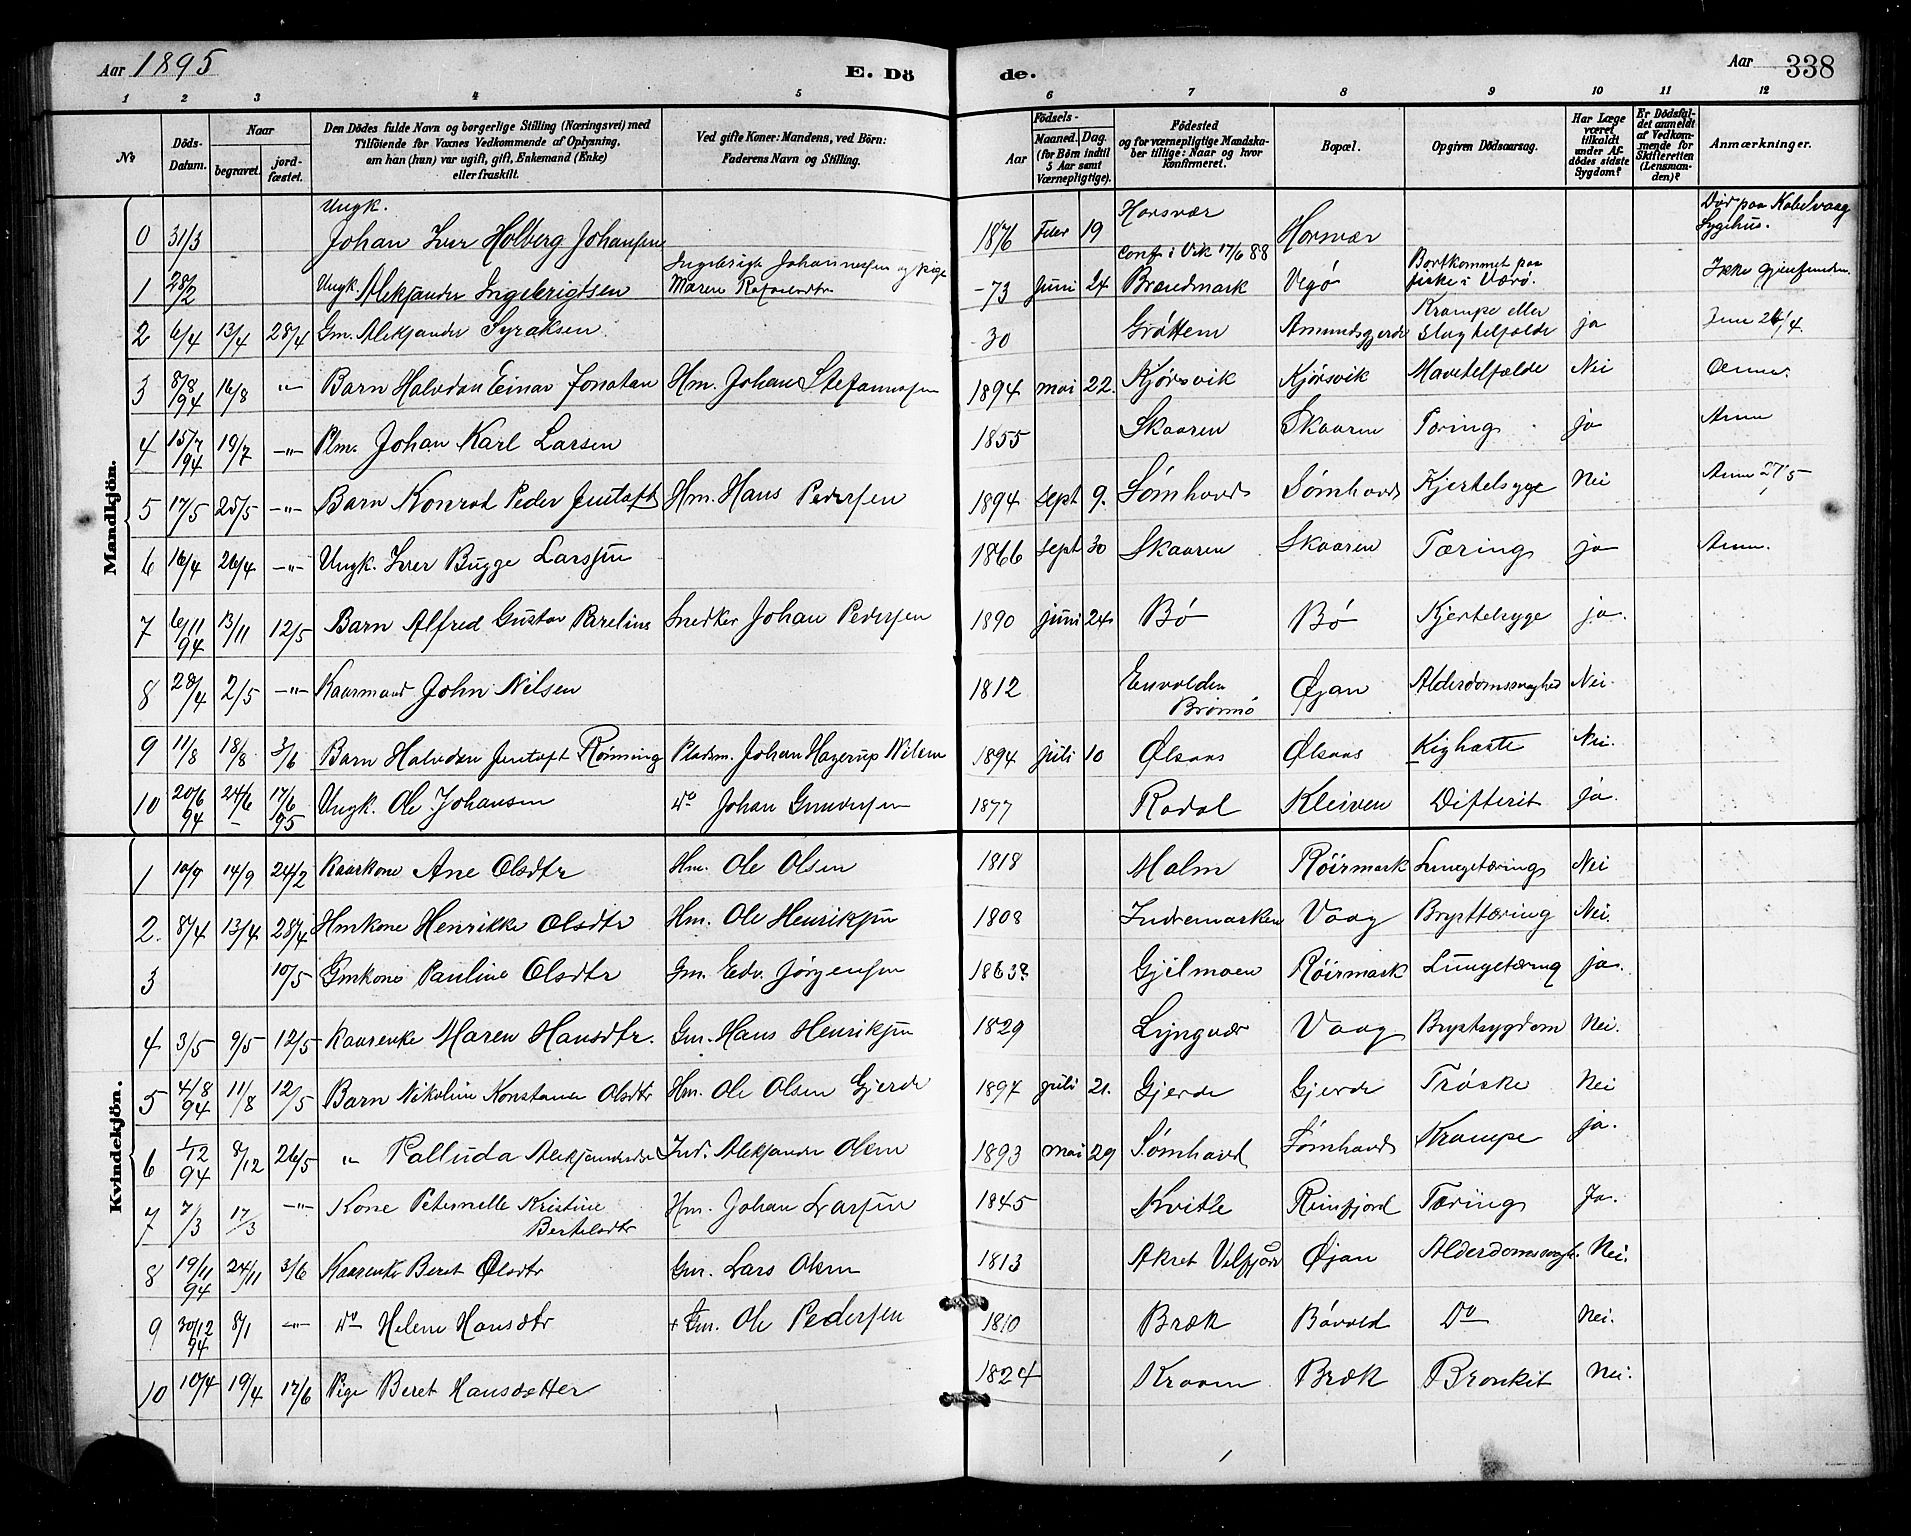 Aar 1895 E. Dö de. Aar 338
1 2 3 4 5 6 7 8 9 10 11 12
No Döds-Datum. Naar begravet. jordfæstet. Den Dödes fulde Navn og borgerlige Stilling (Næringsvei) med Tilföiende for Voxnes Vedkommende af Oplysning, om han (hun) var ugift, gift, Enkemand (Enke) eller fraskilt. Ved gifte Koner: Mandens, ved Börn: Faderens Navn og Stilling. Födsels- Aar Maaned. Dag. (for Börn indtil 5 Aar samt Værnepligtige). Födested og for værnepligtige Mandskaber tillige: Naar og hvor konfirmeret. Bopæl. Opgiven Dödsaarsag. Har Læge været tilkaldt under Afdödes sidste Sygdom? Er Dödsfaldet anmeldt af Vedkommende for Skifteretten (Lensmanden)? Anmærkninger.
Mandkjön.
0 31/3 Ungk. Johan Iver Holberg Johansen 1876 Febr 19 Horsvær Conf. i Vik 17/6 88 Horsvær Död paa Kabelvaag Sygehus.
1 28/2 Ungk. Aleksander Ingebrigtsen Ingebrigt Johannessen og pige Maren -73 Juni 24 Brændmark Vegö Bortkommet paa fiske i Værö. Ikke gjenfunden
2 6/4 13/4 28/4 Gm. Aleksander Syraksen -30 Gröttem Amundsgjerde Krampe eller ja
3 8/8 94 16/8 -"- Barn Halvdan Einar Jonatan Hm. Johan Stefanussen 1894 mai 22. Kjörsvik Kjörsvik Nei
4 15/7 1894 19/7 -"- Plm. Johan Karl Larsen 1855 Skaaren Skaaren Tæring ja
5 17/5 25/5 -"- Barn Konrad Peder Jentoft Hm. Hans Pedersen 1894 Sept 9. Sömhovd Sömhovd Kjertelsyge Nei Anm 27/5
6 16/4 26/4 -"- Ungk. Iver Bugge Larssen 1866 Sept 30 Skaaren Skaaren Tæring ja Anm.
7 6/11 94 13/11 12/5 Barn Alfred Gustav Parelius Snedker Johan Pedersen 1890 Juni 24. Bö Bö Kjertelsyge ja.
8 28/4 2/5 -"- Kaarmand John Nilsen 1812 Brönnö Öjan Alderdomssvaghed Nei.
9 11/8 18/8 3/6 Barn Halvdan Jentoft Rönning Pladsm. Johan Hagerup Nilsen 1894 Juli 10 Ølsaas Ølsaas Kighoste Nei.
10 20/6 94 24/6 17/6 95 Ungk. Ole Johansen Do Johan Gundersen 1877 Rodal Kleiven Difterit ja.
Kvindekjön.
1 10/9 14/9 24/2 Kaarkone Ane Olsdtr Hm. Ole Olsen 1818 Malm Röirmark Lungetæring Nei
2. 8/4 13/4 28/4 Hmkone Henrikke Olsdtr Hm. Ole Henriksen 1808 Indremarken Vaag Brysttæring Nei.
3 10/5 Gmkone Pauline Olsdtr Gm. Edv. Jörgensen 1863? Gjilmoen Röirmark Lungetæring ja.
4 3/5 9/5 12/5 Kaarenke Maren Hansdtr. Gm. Hans Henriksen 1829 Lyngvær Vaag Brystsygdom Nei.
5 4/8 94 11/8 12/5 Barn Nikoline Konstance Olsdtr Hm. Ole Olsen Gjerde 1894 Juli 21. Gjerde Gjerde Tröske Nei
6 1/12 94 8/12 26/5 " Palluda Aleksandersdtr Ind. Aleksander Olsen 1893 mai 29 Sömhovd Sömhovd Krampe ja.
7 7/3 17/3 -"- Kone Peternelle Kristine Bertelsdtr Hm. Johan Larsen 1845 Kvitle Reinfjord Tæring Ja.
8 19/11 94 24/11 3/6 Kaarenke Beret Olsdtr Gm. Lars Olsen 1813 Akret Velfjord Øjan Alderdomssvagh. Nei.
9 30/12 94 8/1 -"- Do Helene Hansdtr + Gm. Ole Pedersen 1810 Bræk Bövold Do Nei.
10 10/4 19/4 17/6 Pige Beret Hansdatter 1824 Kroom Bræk Bronkit Nei.